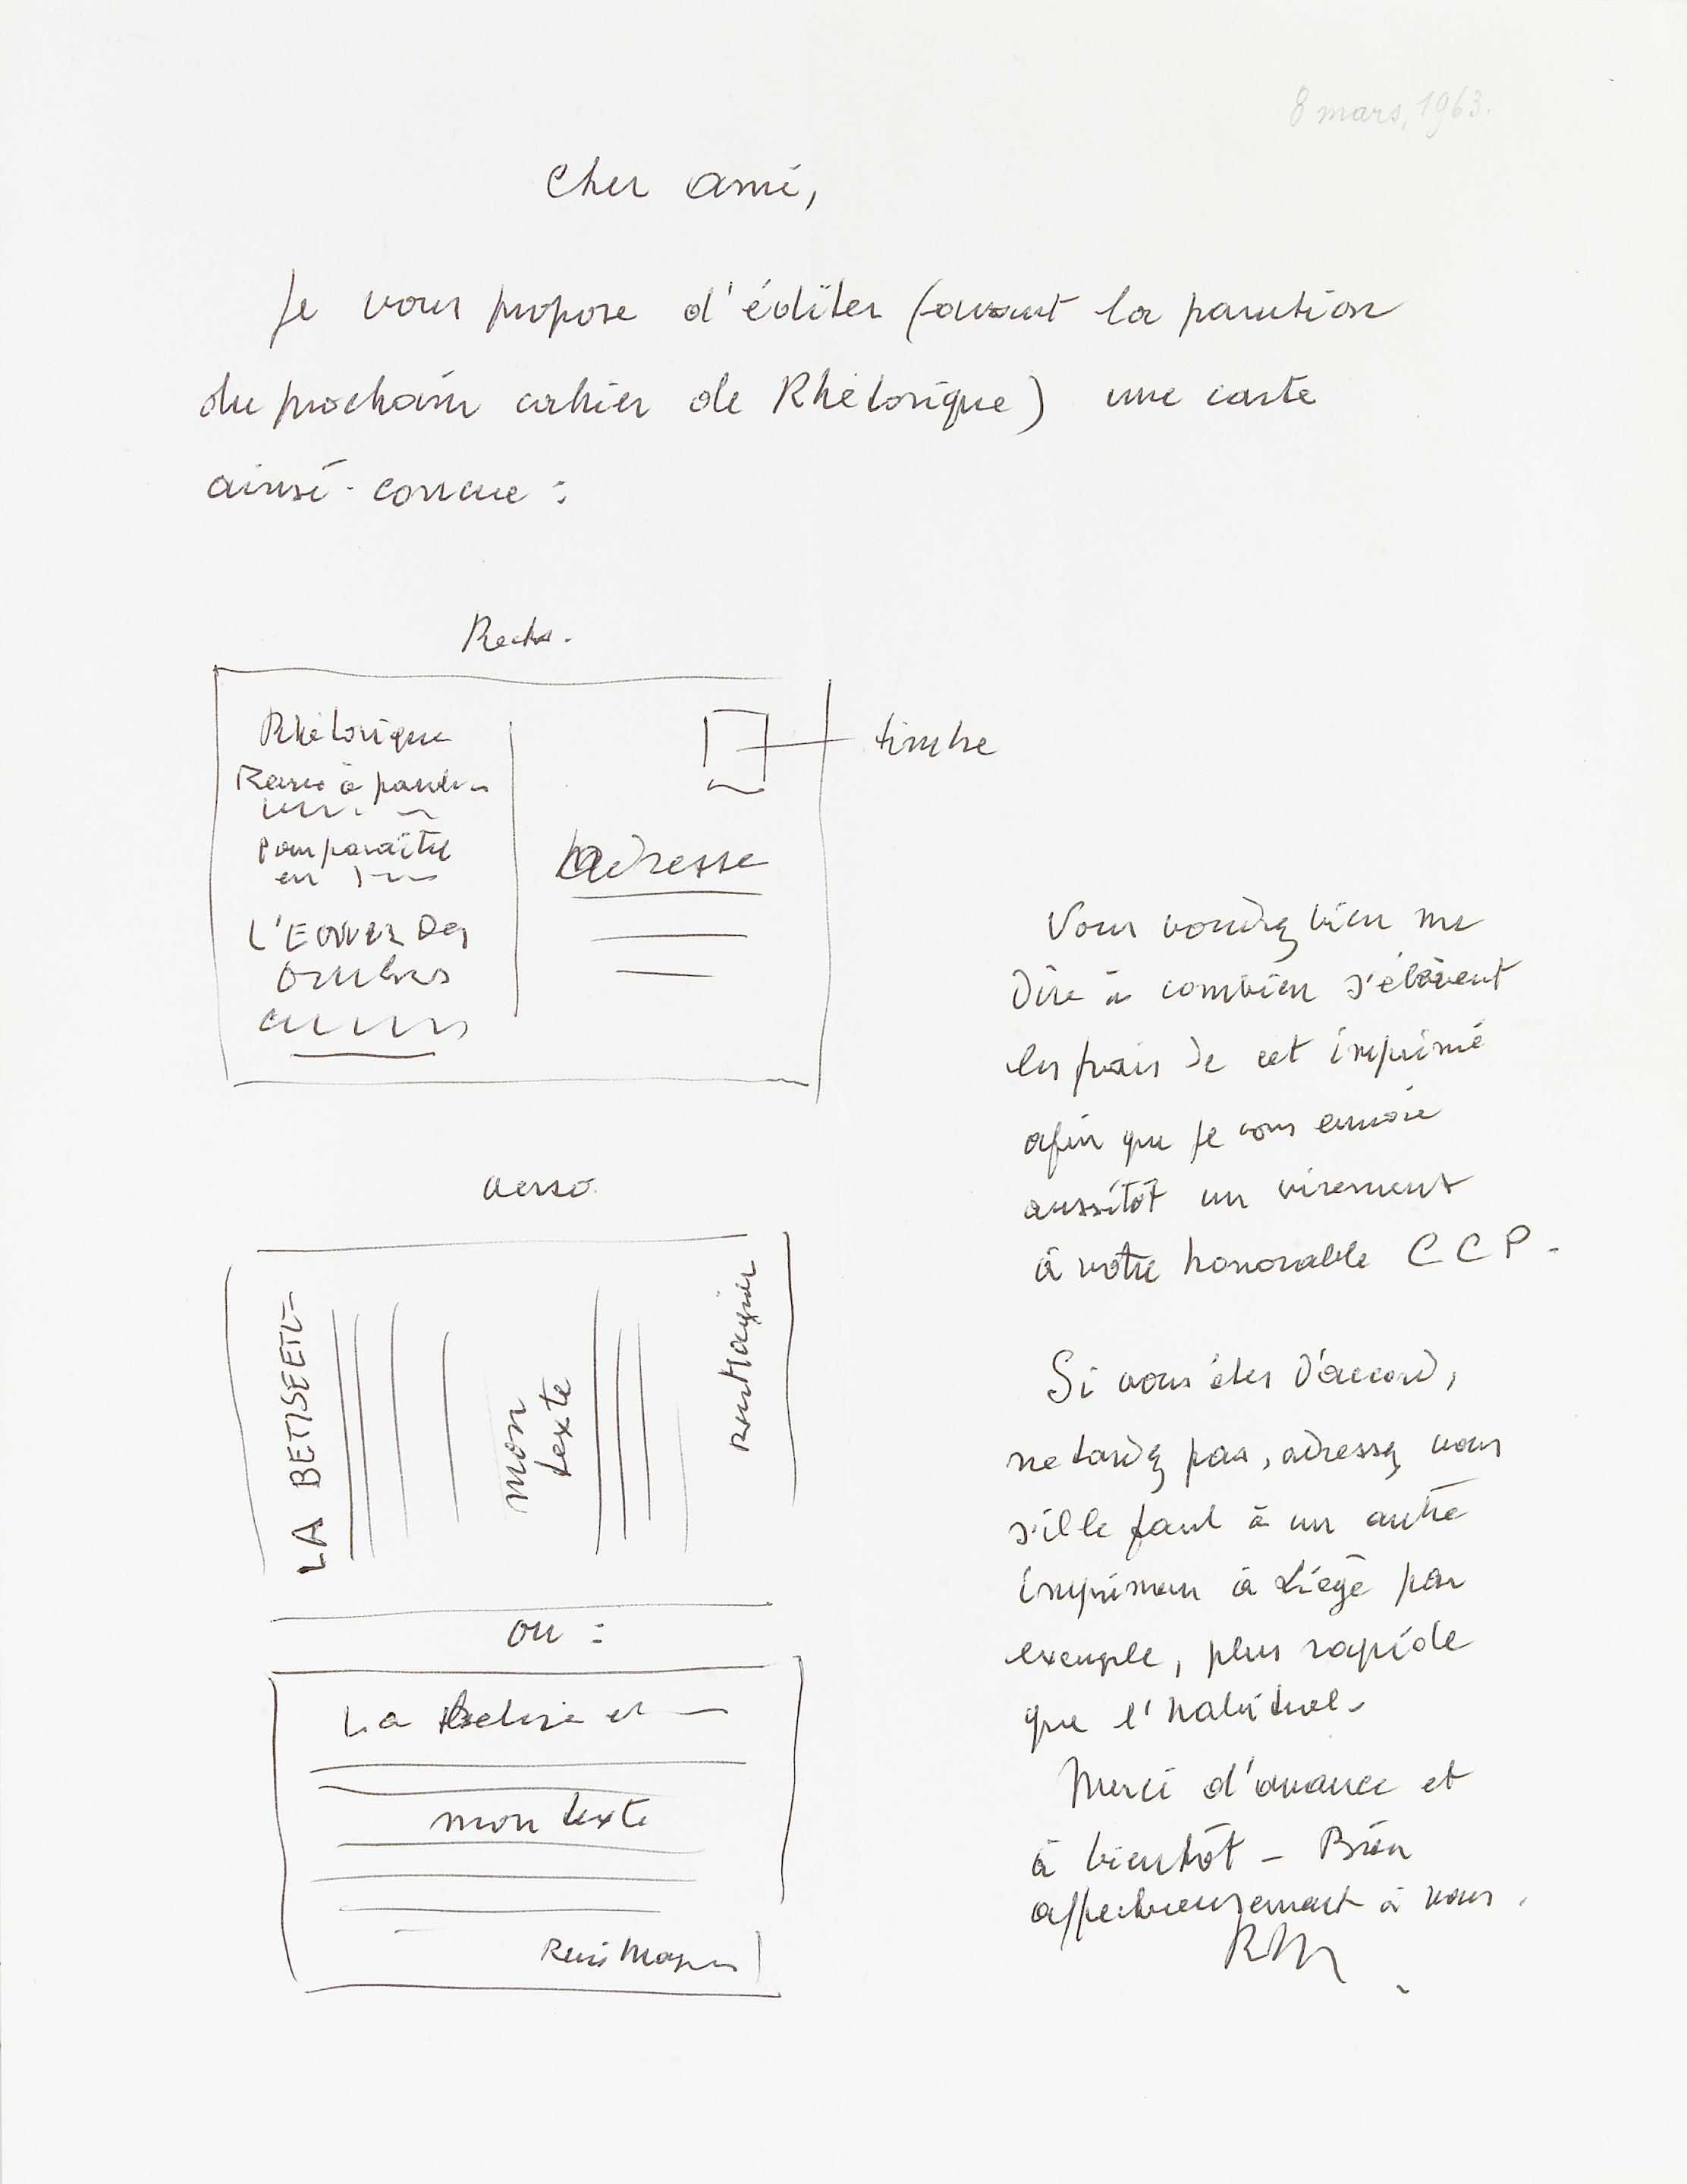 8 mars, 1963.
Cher ami,
Je vous propose d'éditer (avant la parution
du prochain cahier de Rhétorique) une carte
ainsi conçue :
Recto.
Rhétorique
Revue à
pour paraître
en
L'Ecole des
timbre
adresse
verso.
LA BETISE ET
mon
texte
René Magritte
ou :
La Betise et
mon texte
René
Vous voudrez bien me
dire à combien s'élèvent
les frais de cet imprimé
afin que je vous envoie
aussitôt un virement
à votre honorable CCP -
Si vous êtes d'accord,
ne tardez pas, adressez vous
s'il le faut à un autre
imprimeur à Liège par
exemple, plus rapide
que l'habituel.
Merci d'avance et
à bientôt - Bien
affectueusement à vous.
RM